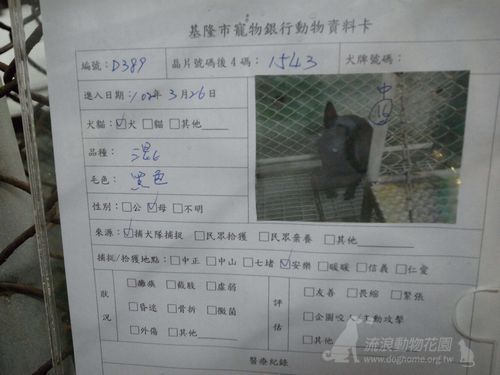 基隆市寵物銀行動物資料卡
編號：D389 晶片號碼後4碼：1543 犬牌號碼：
進入日期：102年3月26日
犬貓：☑犬 □貓 □其他
品種：混
毛色：黑色
性別：□公 ☑母 □不明
中
來源：☑捕犬隊捕捉 □民眾拾獲 □民眾棄養 □其他
捕捉/拾獲地點：□中正 □中山 □七堵 ☑安樂 □暖暖 □信義 □仁愛
狀況
□癱瘓 □截肢 □虛弱
□昏迷 □骨折 □黴菌
□外傷 □其他
評估
□友善 □畏縮 □緊張
□企圖咬人/主動攻擊
□其他
醫療紀錄
流浪動物花園
www.doghome.org.tw